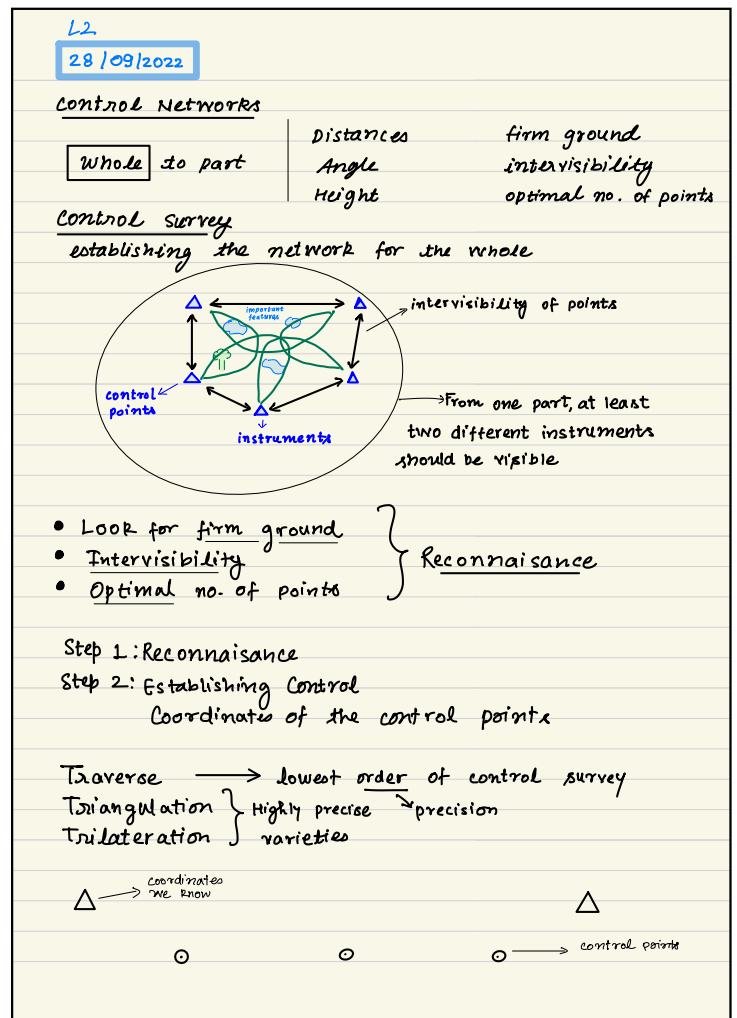 L2
28/09/2022
Control Networks
Whole to part
Distances firm ground
Angle intervisibility
Height optimal no. of points
Control Survey
establishing the network for the whole
important
features
intervisibility of points
control
points
instruments
From one part, at least
two different instruments
should be visible
• Look for firm ground
• Intervisibility
• Optimal no. of points
Reconnaisance
Step 1: Reconnaisance
Step 2: Establishing Control
Coordinates of the control points
Traverse → lowest order of control survey
Triangulation } Highly precise precision
Trilateration varieties
coordinates
we know
control points